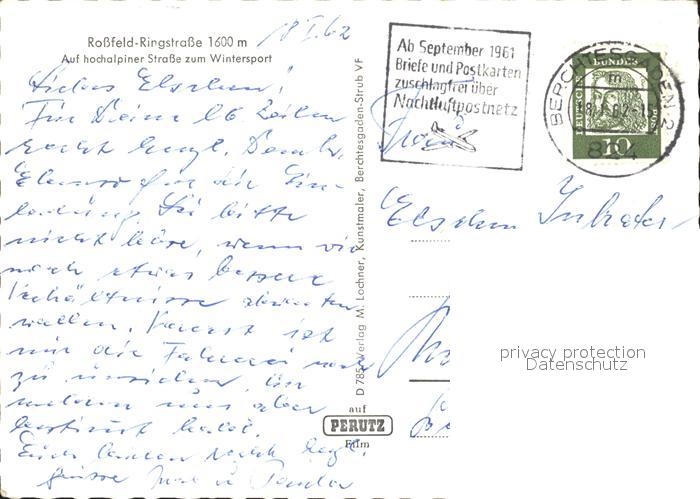 Roßfeld-Ringstraße 1600 m
Auf hochalpiner Straße zum Wintersport
18.I.62
Liebes Elschen!
Für Deine lb. Zeilen
recht herzl. Dank,
Ebenso für die Ein-
ladung. Sei bitte
nicht böse, wenn wir
noch etwas bessere
Verhältnisse abwarten
wollen. Vorerst ist
mir die Fahrerei
zu unsicher. Wir
melden uns aber
bestimmt bald.
Euch beiden recht herzl.
Grüsse
D 785 Verlag M. Lochner, Kunstmaler, Berchtesgaden-Strub VF
auf
PERUTZ
Film
Ab September 1961
Briefe und Postkarten
zuschlagfrei über
Nachtluftpostnetz
BERCHTESGADEN 2
DEUTSCHE BUNDESPOST
10
Frau
Elschen
privacy protection
Datenschutz